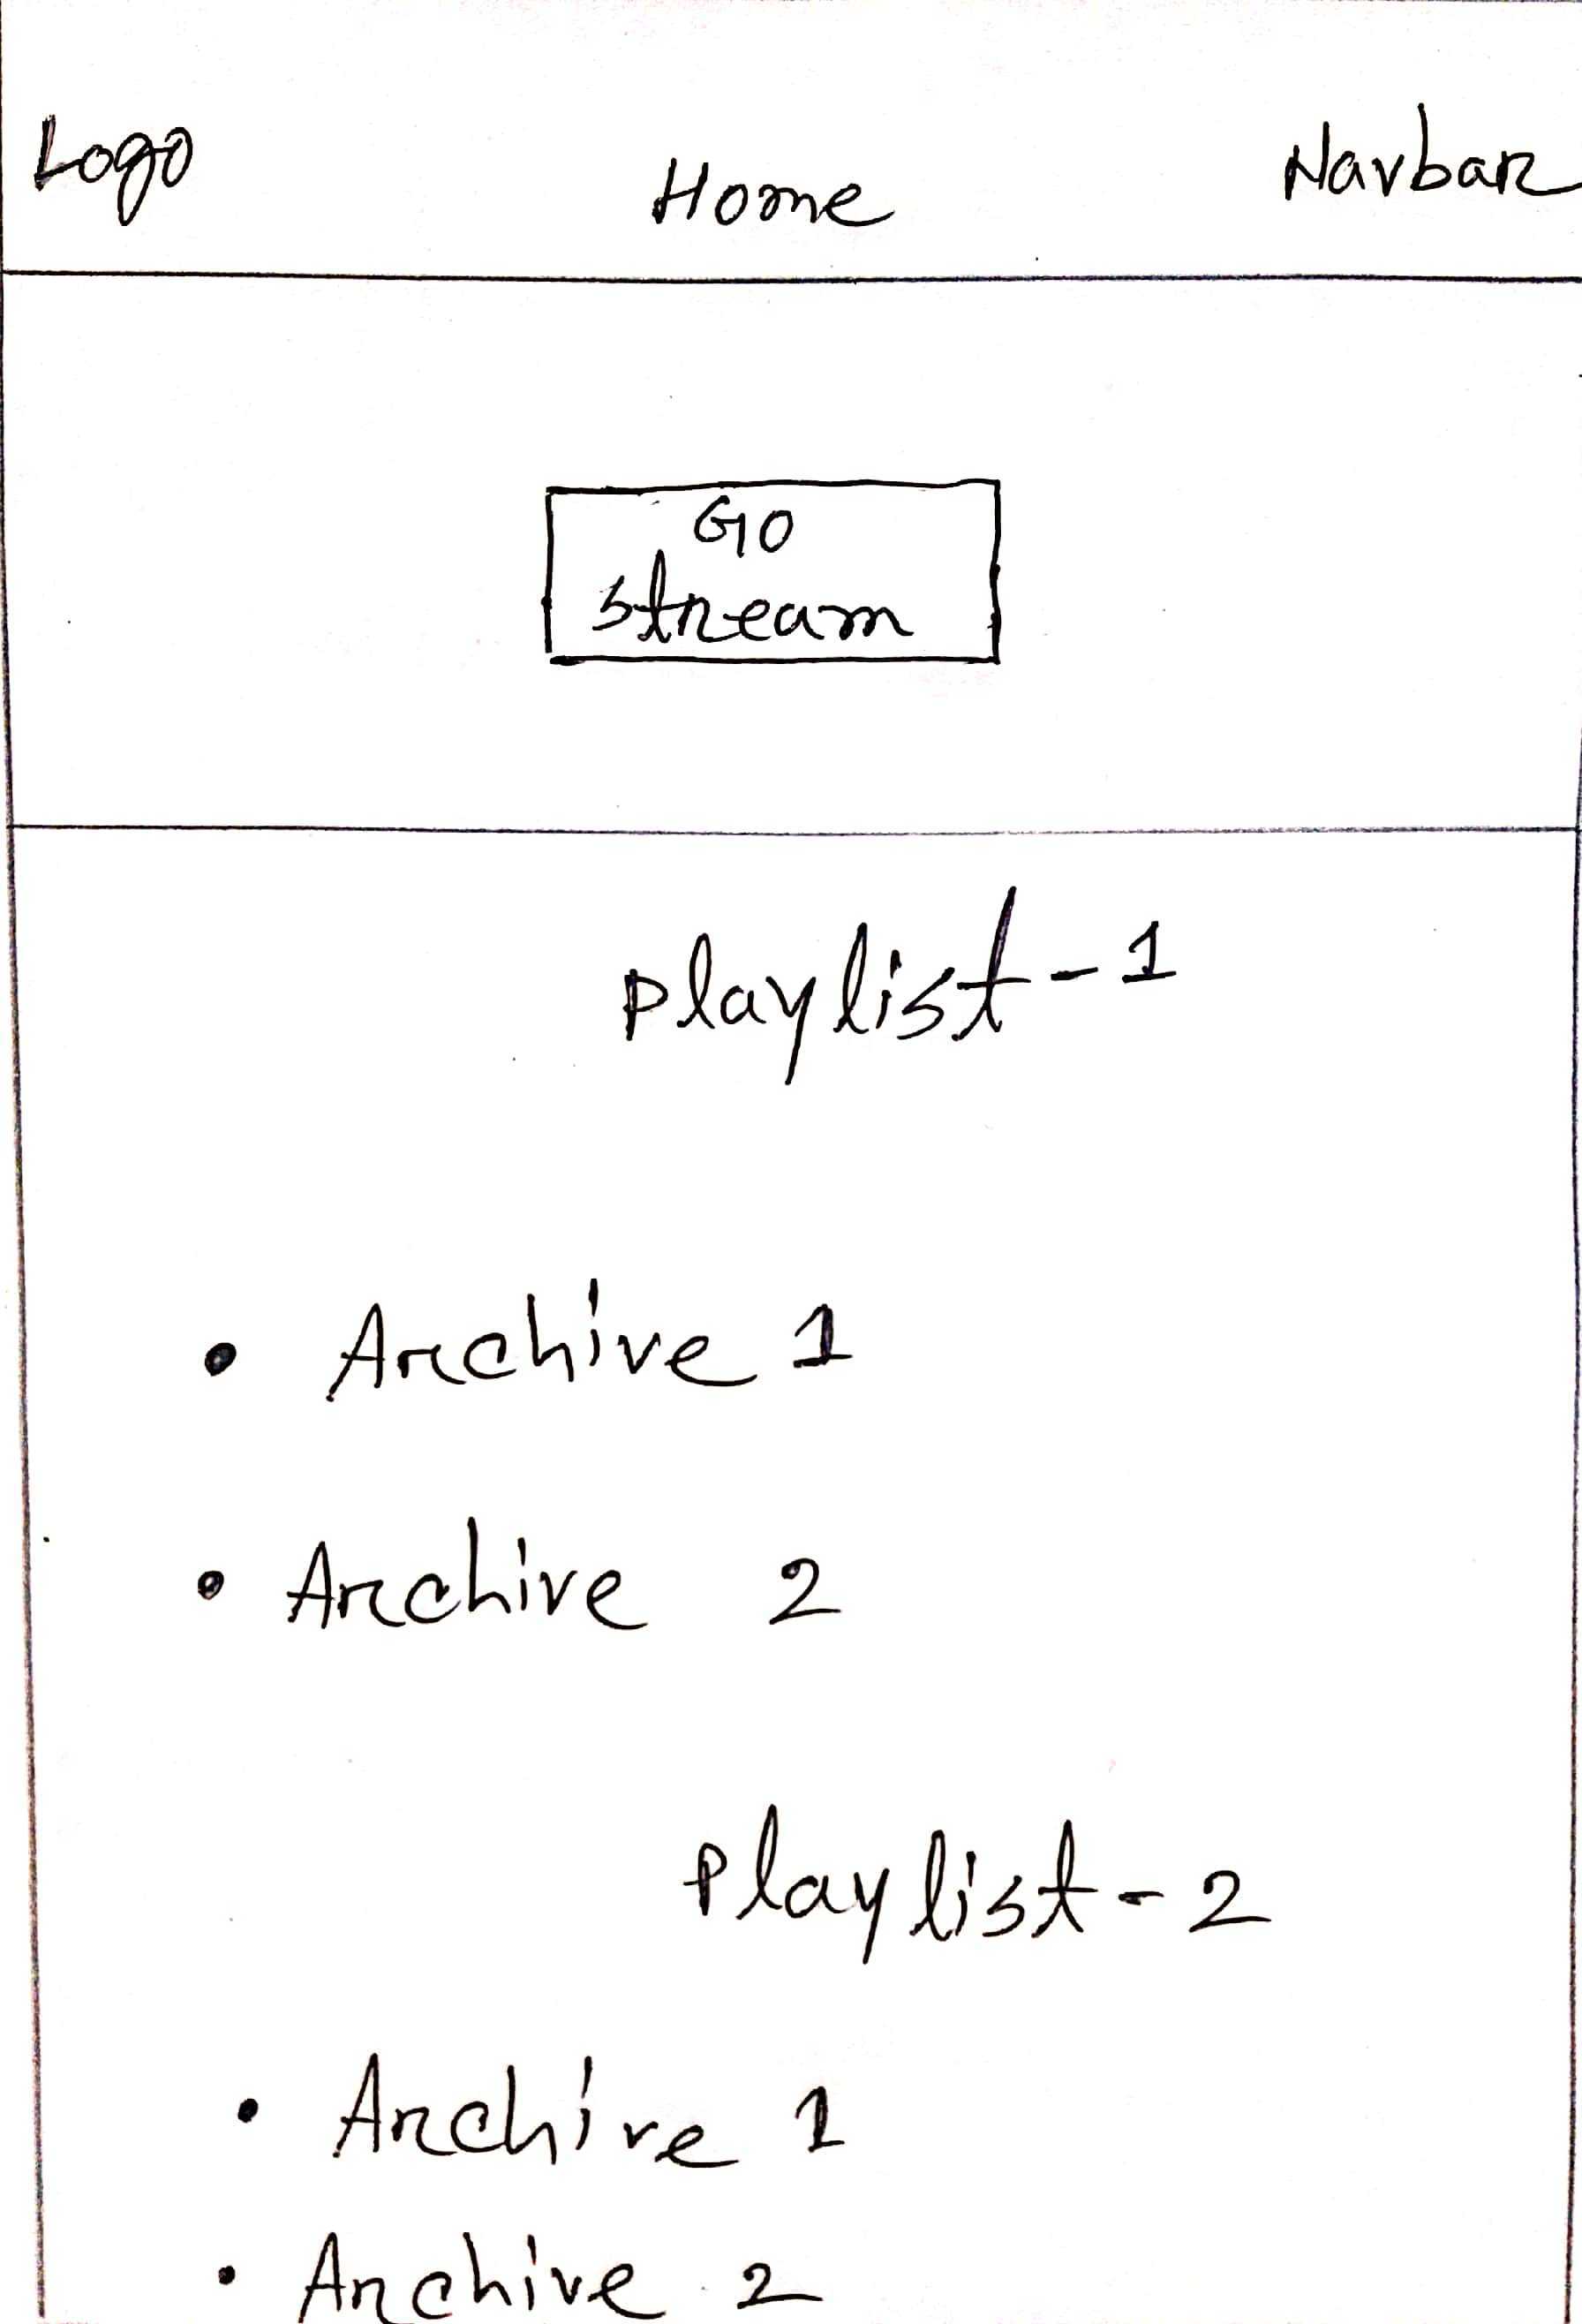 Logo Home Navbar
GO
stream
Playlist-1
• Archive 1
• Archive 2
Playlist-2
• Archive 1
• Archive 2